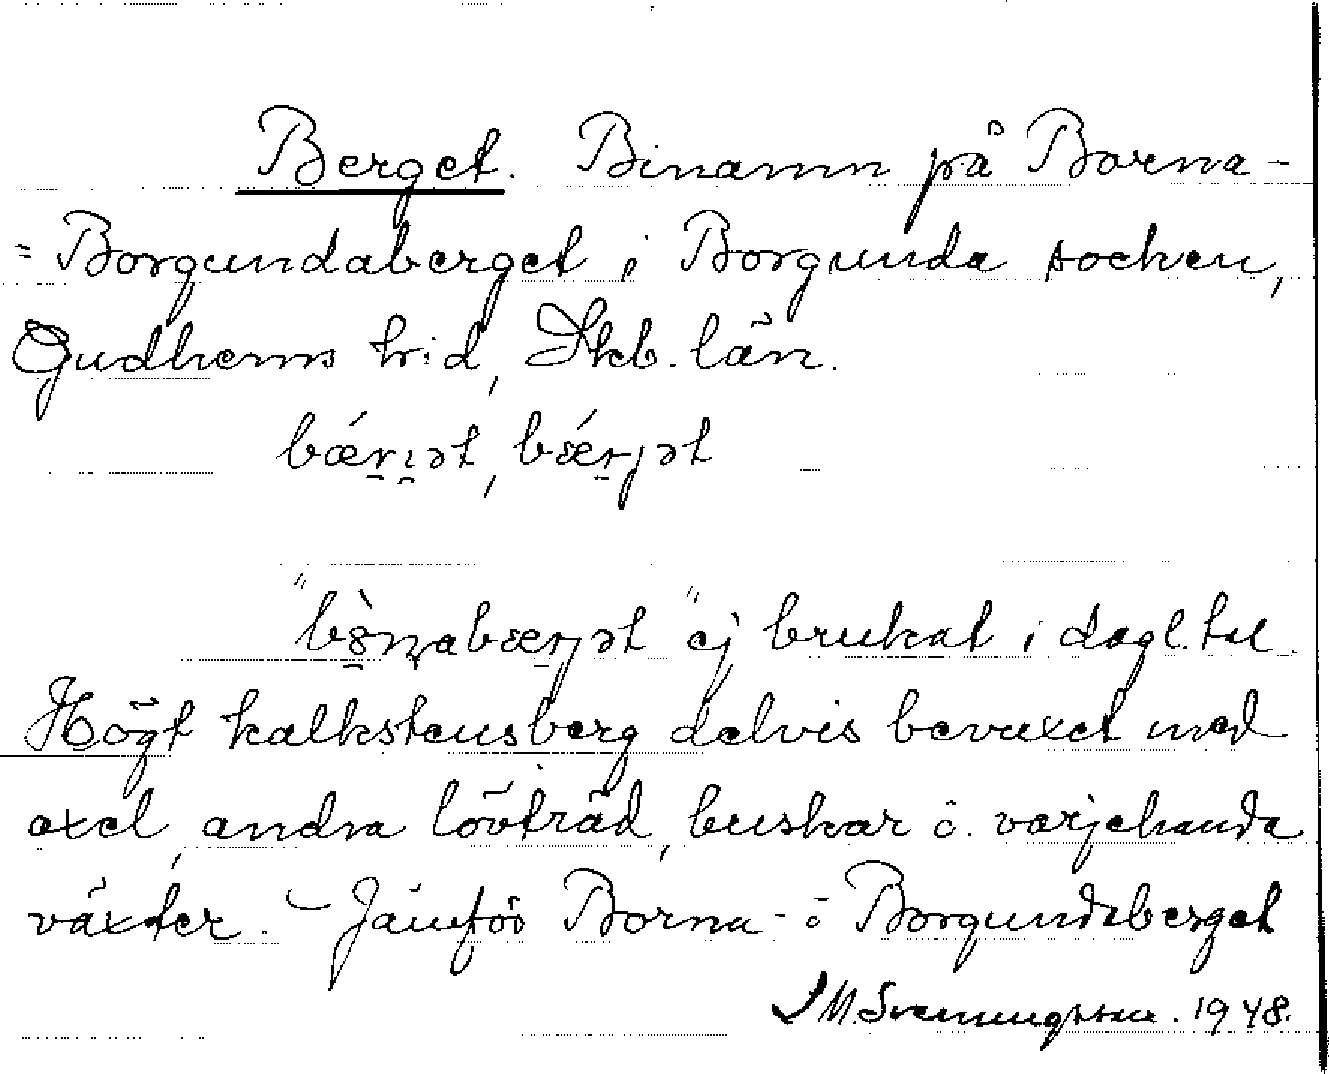 Berget. Binamn på Borna-
=Borgundaberget i Borgunda socken,
Gudhems h:d, Skb. län.
bǽr̠ı̯ət, bǽr̠jət
"bò̠n̥abær̠jət" ej brukat i dagl. tal.
Högt kalkstensberg delvis bevuxet med
oxel, andra lövträd, buskar o. varjehanda
växter. – Jämför Borna- o Borgundaberget
J M. Svenningsson. 1948.